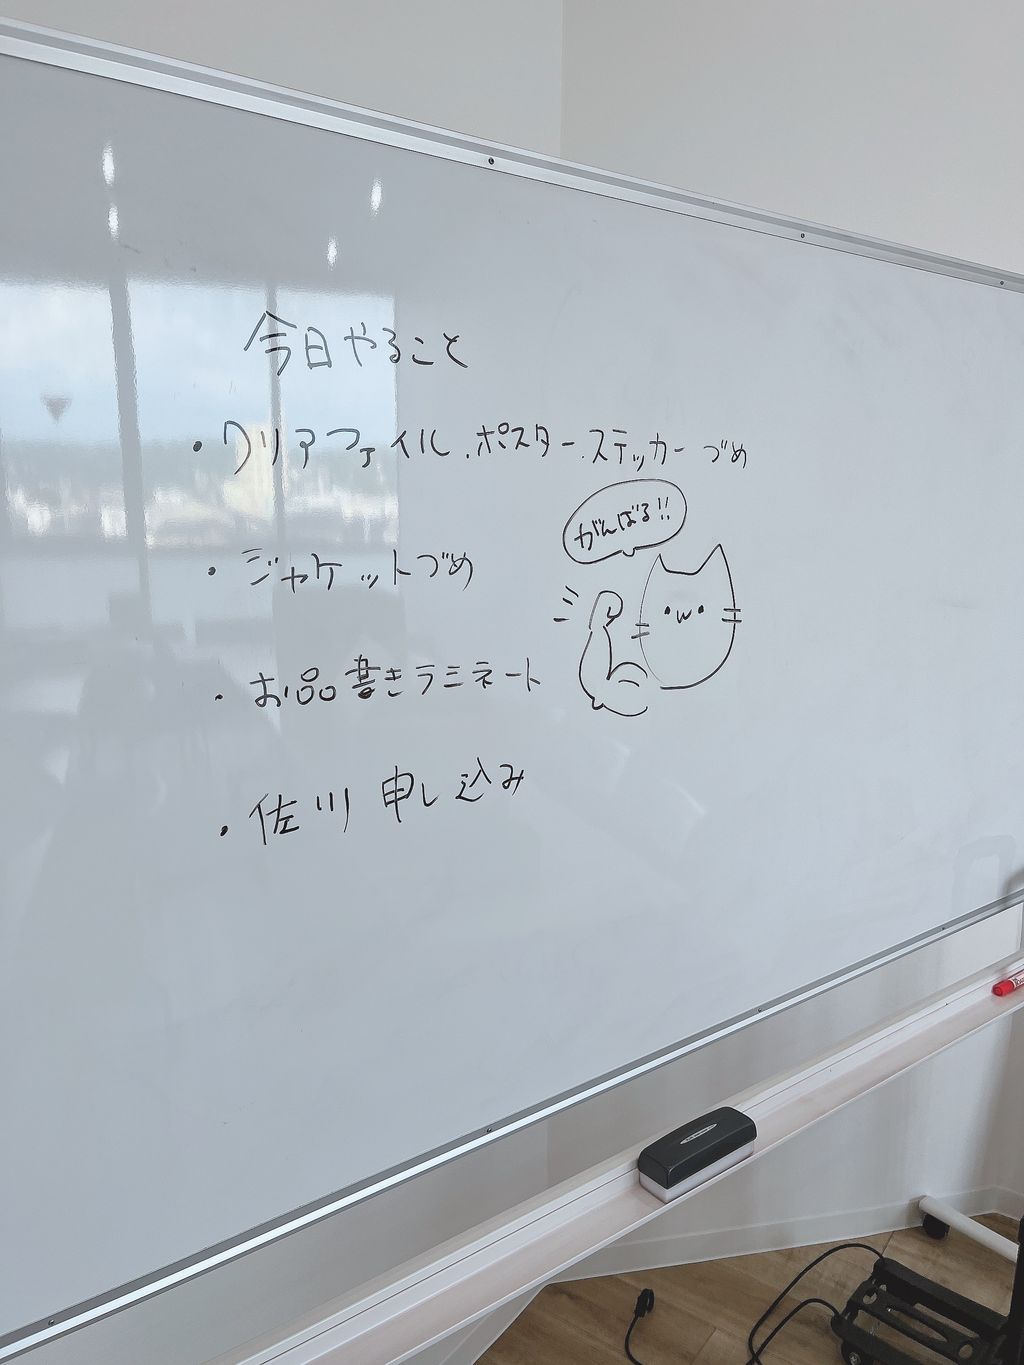 今日やること
・クリアファイル、ポスター、ステッカーづめ
がんばる!!
・ジャケットづめ
・お品書きラミネート
・佐川 申し込み